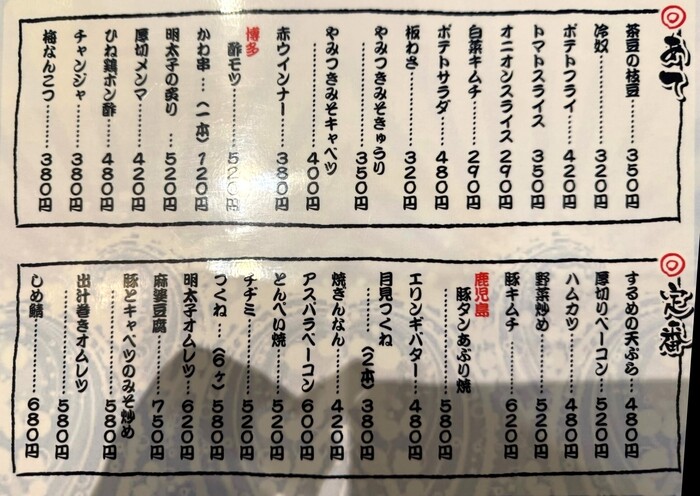 ◎あて
茶豆の枝豆………350円
冷奴………320円
ポテトフライ………420円
トマトスライス………350円
オニオンスライス 290円
白菜キムチ………290円
ポテトサラダ………480円
板わさ………320円
やみつきみそきゅうり………350円
やみつきみそキャベツ………400円
赤ウインナー………380円
博多 酢モツ………520円
かわ串…(一本)120円
明太子の炙り…520円
厚切メンマ………420円
ひね鶏ポン酢………480円
チャンジャ………380円
梅なんこつ………380円
◎定番
するめの天ぷら…480円
厚切りベーコン…520円
ハムカツ………480円
野菜炒め………520円
豚キムチ………620円
鹿児島 豚タンあぶり焼………580円
エリンギバター…480円
月見つくね………(2本)380円
焼ぎんなん………420円
アスパラベーコン 600円
とんぺい焼………520円
チヂミ………520円
つくね…(6ヶ)580円
明太子オムレツ…620円
麻婆豆腐………750円
豚とキャベツのみそ炒め………580円
出汁巻きオムレツ………580円
しめ鯖………680円